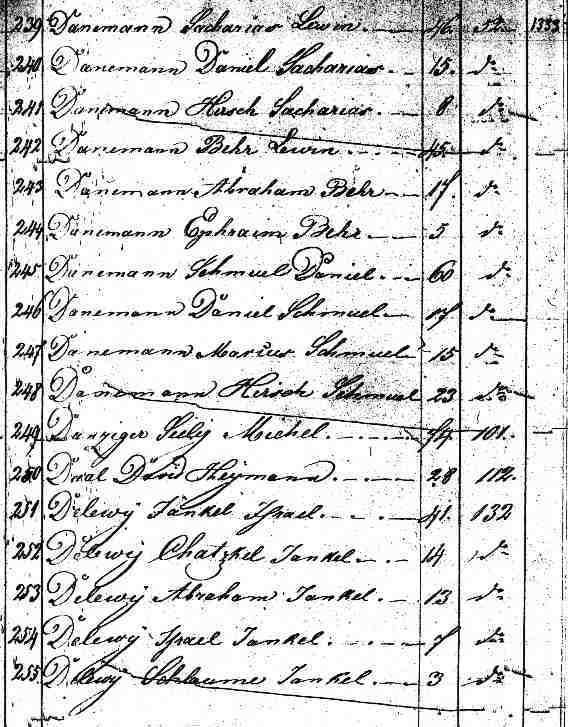 239 Danemann Sacharias Lewin 46. 52. 1333
240 Danemann Daniel Sacharias 15. do
241 Danemann Hirsch Sacharias 8 do
242 Danemann Behr Lewin 45 do
243 Danemann Abraham Behr 17. do
244 Danemann Ephraim Behr 5 do
245 Danemann Schmuel Daniel 60 do
246 Danemann Daniel Schmuel 17 do
247 Danemann Marcus Schmuel 15 do
248 Danemann Hirsch Schmuel 23 do
249 Danziger Seelij Michel 74 101.
250 David Heymann 28 112.
251 Delewij Jankel Israel 41. 132
252 Delewij Chatzkel Jankel 14 do
253 Delewij Abraham Jankel 13 do
254 Delewij Israel Jankel 7 do
255 Delewij Schlaume Jankel 3 do